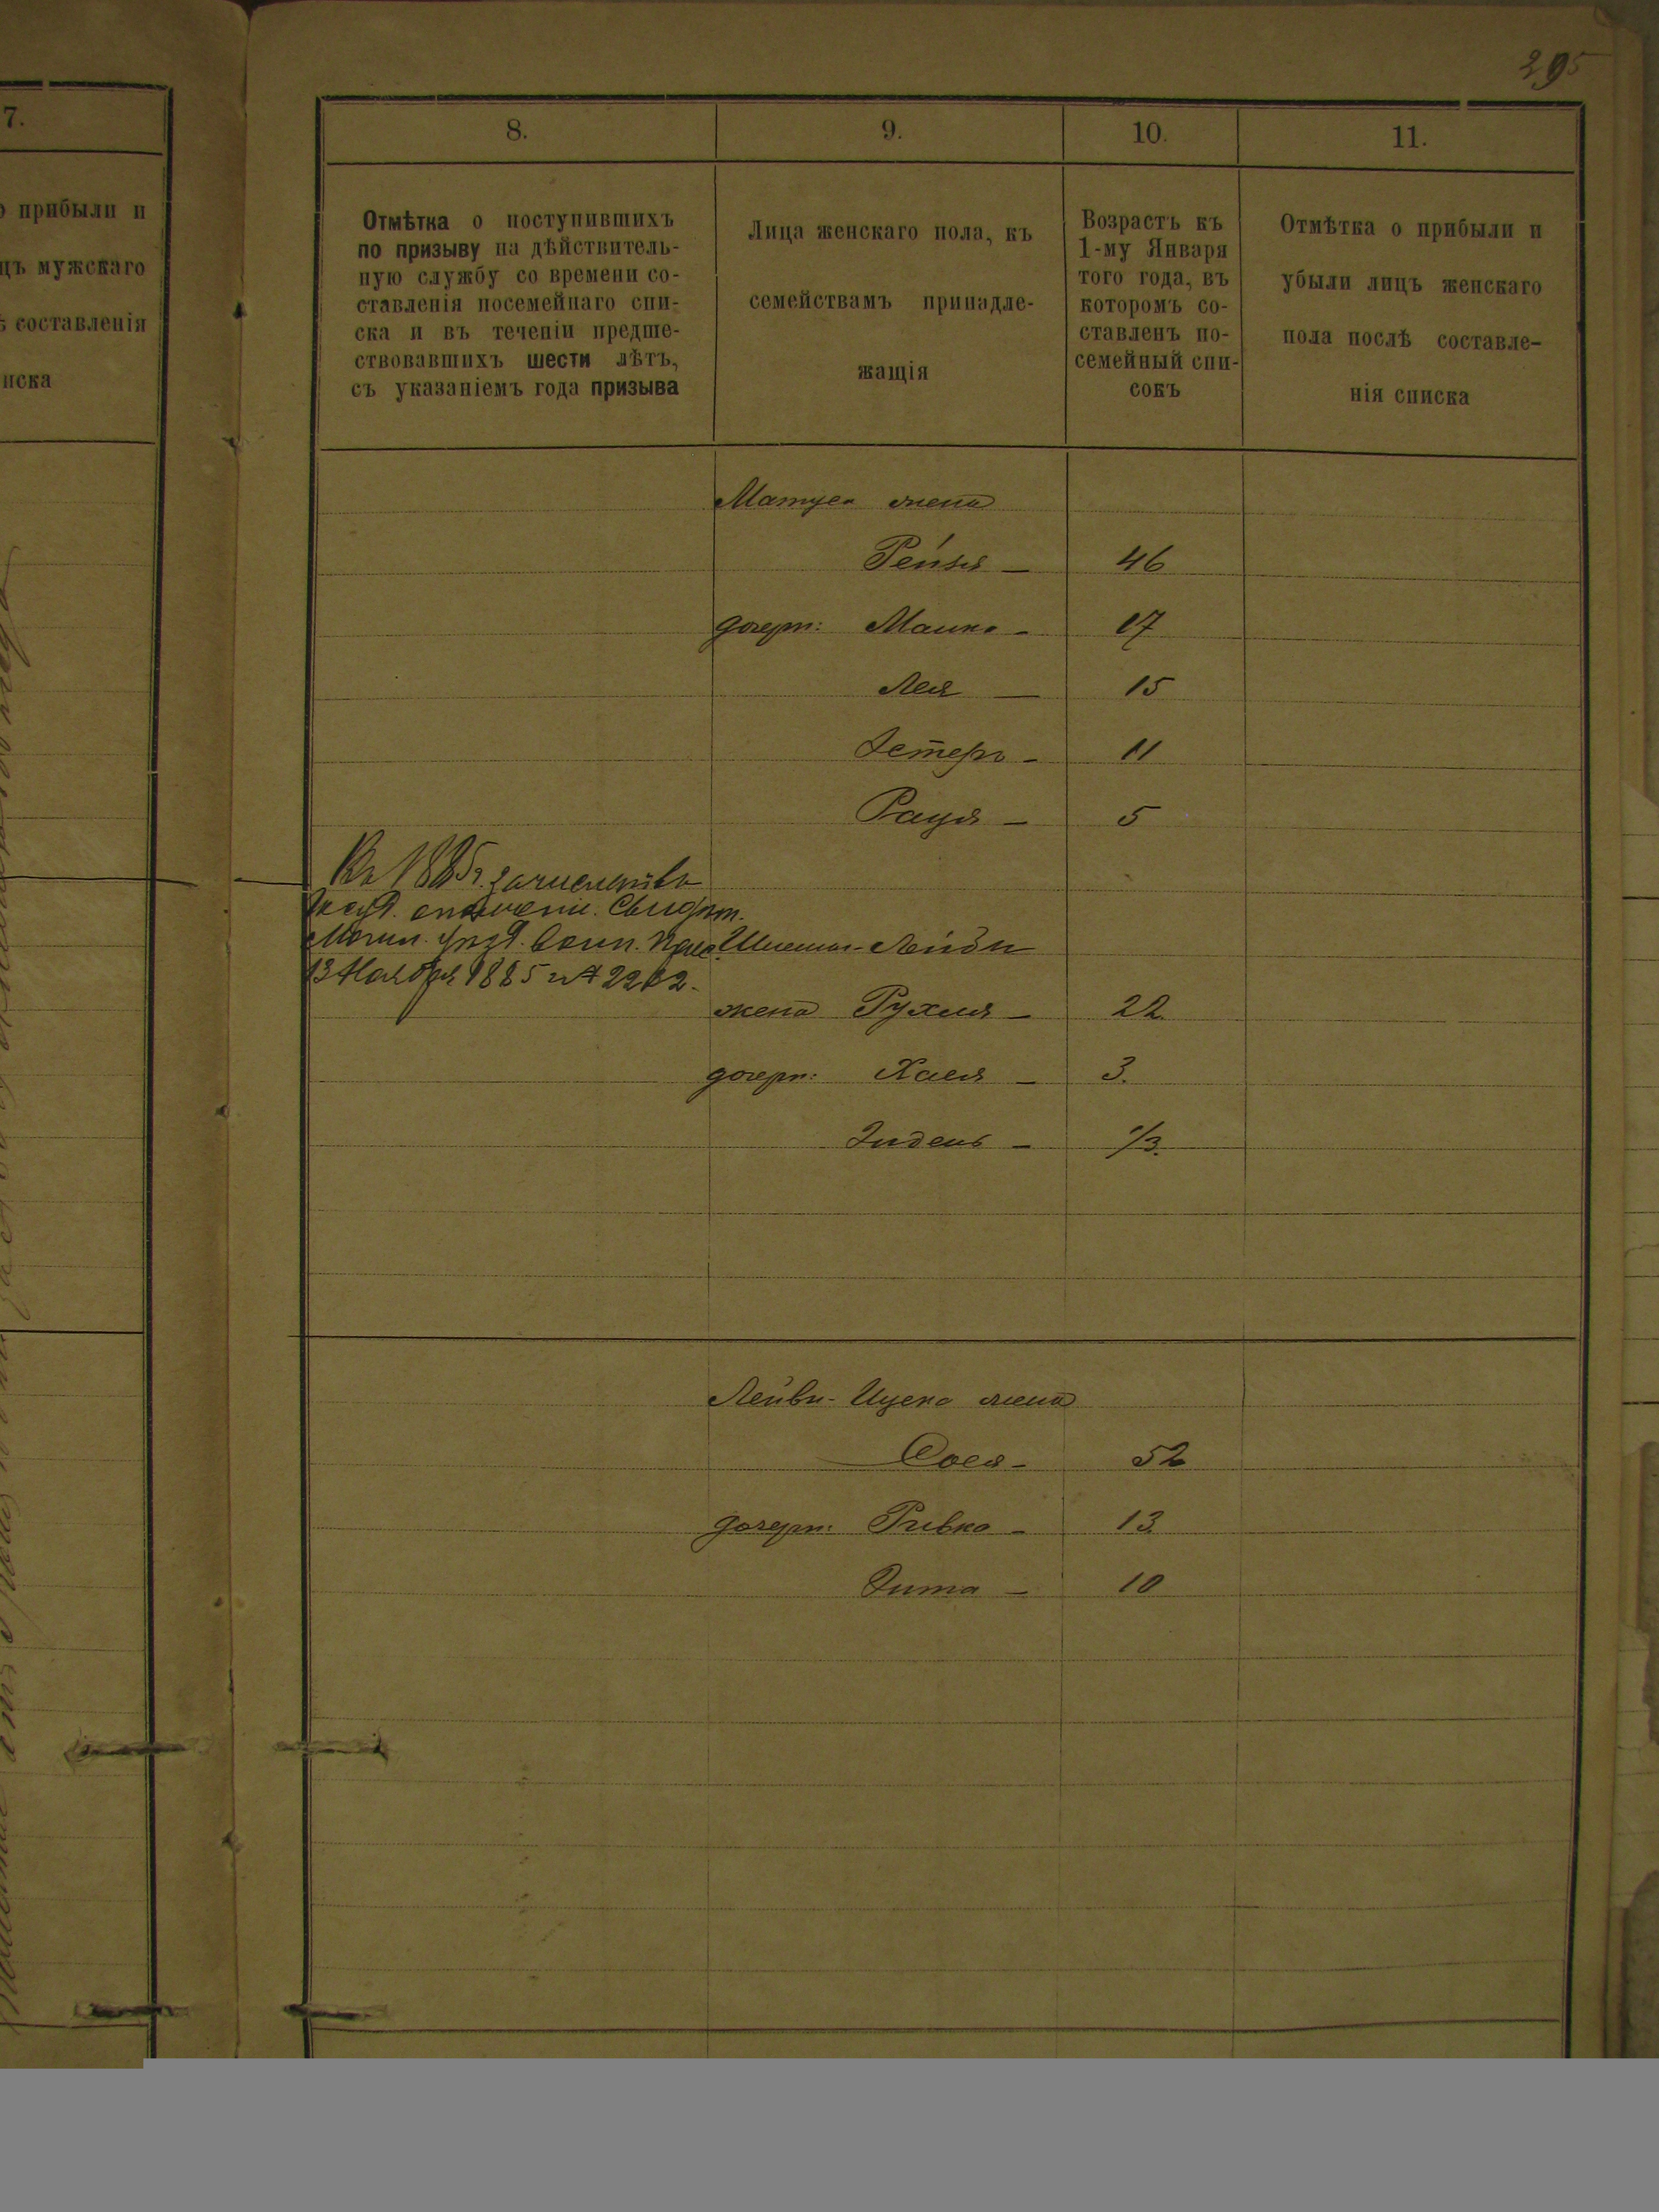 295
7.
о прибыли и
цъ мужскаго
составленія
иска
8.
9.
10.
11.
Отмѣтка о поступившихъ
по призыву на дѣйствитель-
ную службу со времени со-
ставленія посемейнаго спи-
ска и въ теченіи предше-
ствовавшихъ шести лѣтъ,
съ указаніемъ года призыва
Лица женскаго пола, къ
семействамъ принадле-
жащія
Возрастъ къ
1-му Января
того года, въ
которомъ со-
ставленъ по-
семейный спи-
сокъ
Отмѣтка о прибыли и
убыли лицъ женскаго
пола послѣ составле-
нія списка
Матуса жена
Рейзя — 46
дочери: Малка — 17
Лея — 15
Эстеръ — 11
Рася — 5
Въ 1885 г. зачисленъ въ
ополчени. Свидѣт.
Могил. уѣзд. Воин. Прис.
13 Ноября 1885 г. № 2202.
Лейбы
жена Рухля — 22
дочери: Хася — 3.
Эйдель — 1/3.
Лейвы-Ицека жена
Сося — 52
дочери: Ривка — 13
Гита — 10